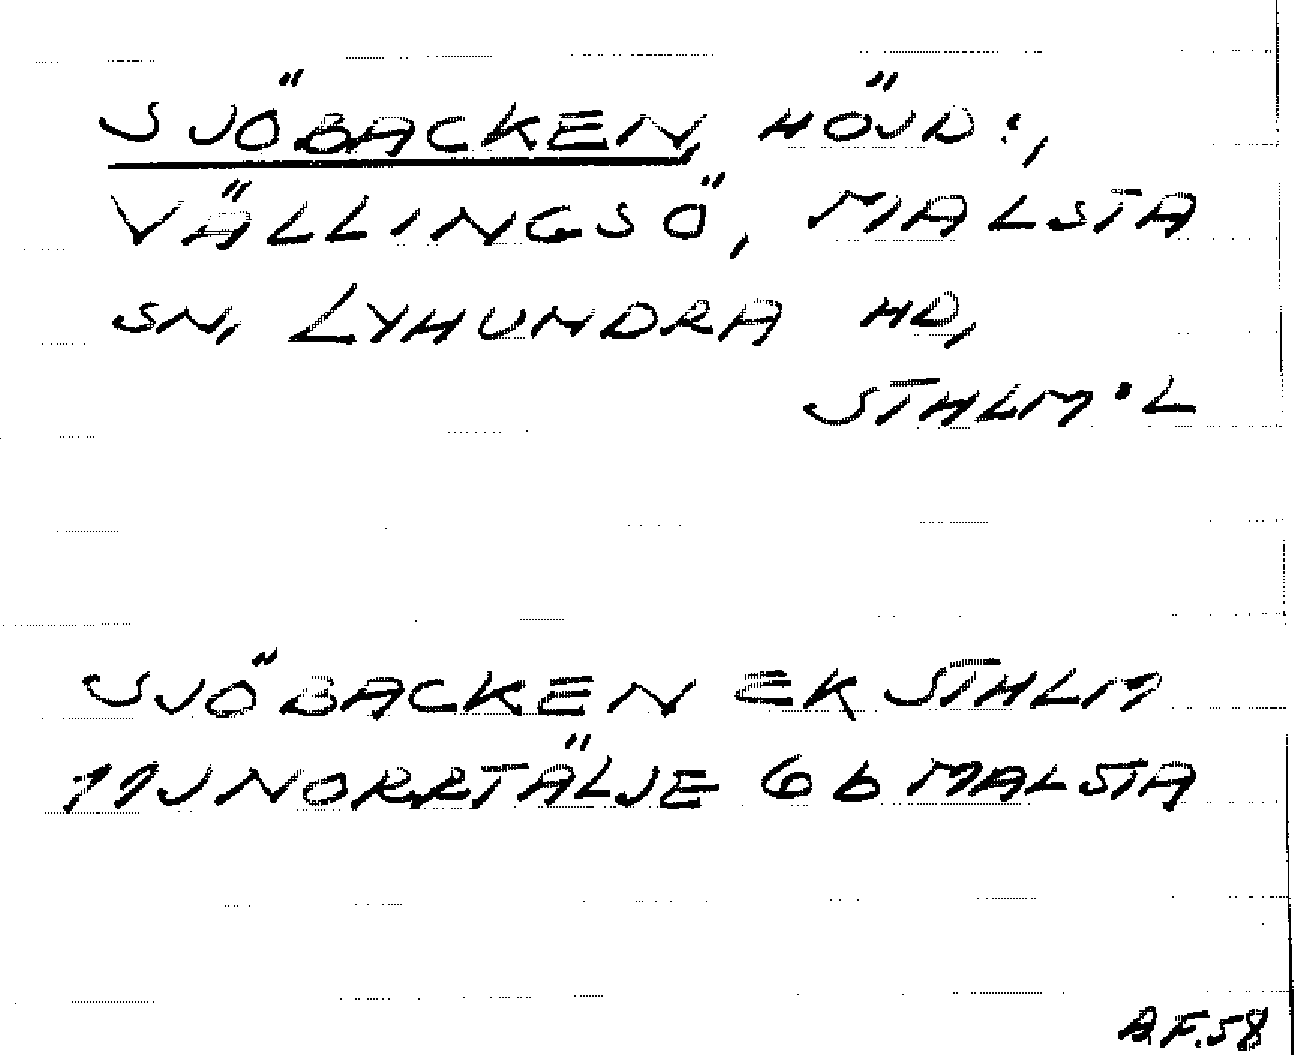 SJÖBACKEN, HÖJD:,
VÄLLINGSÖ, MALSTA
SN, LYHUNDRA HD,
STHLM·L
SJÖBACKEN EK STHLM
11J NORRTÄLJE 6b MALSTA
A.F.58